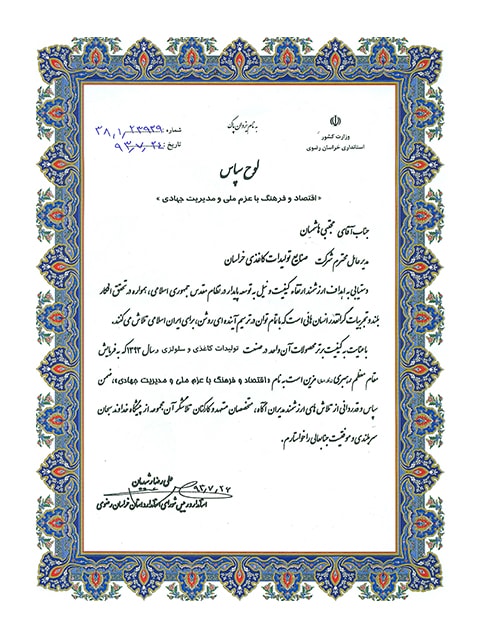 به نام یزدان پاک
وزارت کشور
استانداری خراسان رضوی
شماره: ۳۸,۱,۲۳۹۳۹
تاریخ: ۹۳,۷,۲۴
لوح سپاس
« اقتصاد و فرهنگ با عزم ملی و مدیریت جهادی »
جناب آقای مجتبی هاشمیان
مدیرعامل محترم شرکت صنایع تولیدات کاغذی خراسان
دستیابی به اهداف ارزشمند ارتقاء کیفیت و نیل به توسعه پایدار در نظام مقدس جمهوری اسلامی، همواره در تحقق افکار
بلند و تجربیات گرانقدر انسان هائی است که با تمام توان در ترسیم آینده ای روشن، برای ایران اسلامی تلاش می کنند.
با عنایت به کیفیت برتر محصولات آن واحد در صنعت تولیدات کاغذی و سلولزی در سال ۱۳۹۳ که به فرمایش
مقام معظم رهبری مزین است به نام «اقتصاد و فرهنگ با عزم ملی و مدیریت جهادی»، ضمن
سپاس و قدردانی از تلاش های ارزشمند مدیران آگاه، متخصصان متعهد و کارکنان تلاشگر آن مجموعه از پیشگاه خداوند سبحان
سربلندی و موفقیت جنابعالی را خواستارم.
علی رضا رشیدیان
۹۳,۷,۲۲
استاندار و رییس شورای استاندارد استان خراسان رضوی